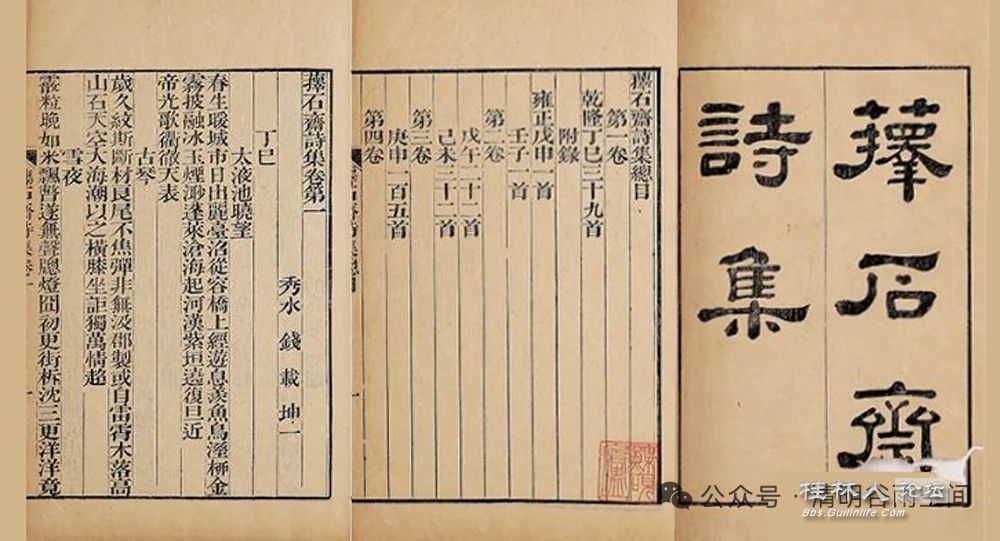 蘀石齋
詩集
蘀石齋詩集總目
第一卷
乾隆丁巳三十九首
附錄
雍正戊申一首
壬子一首
第二卷
戊午十二首
己未二十二首
第三卷
庚申一百五首
第四卷
蘀石齋詩集卷第一
秀水 錢載 坤一
丁巳
太液池曉望
春生暖城市日出麗臺沼從容橋上經遊息羨魚鳥溼柳金
霧披融冰玉煙渺蓬萊滄海起河漢紫垣遶復旦近
帝光歌衢徹天表
古琴
歲久紋斯斷材良尾不焦彈非無汲邵製或自雷霄木落高
山石天空大海潮以之橫膝坐詎獨萬情超
雪夜
霰粒晚如米飄瞥遂無聲牕燈囧初更街柝沈三更洋洋竟
公众号 · 清明谷雨空间
桂林人论坛
Bbs.Guilinlife.com